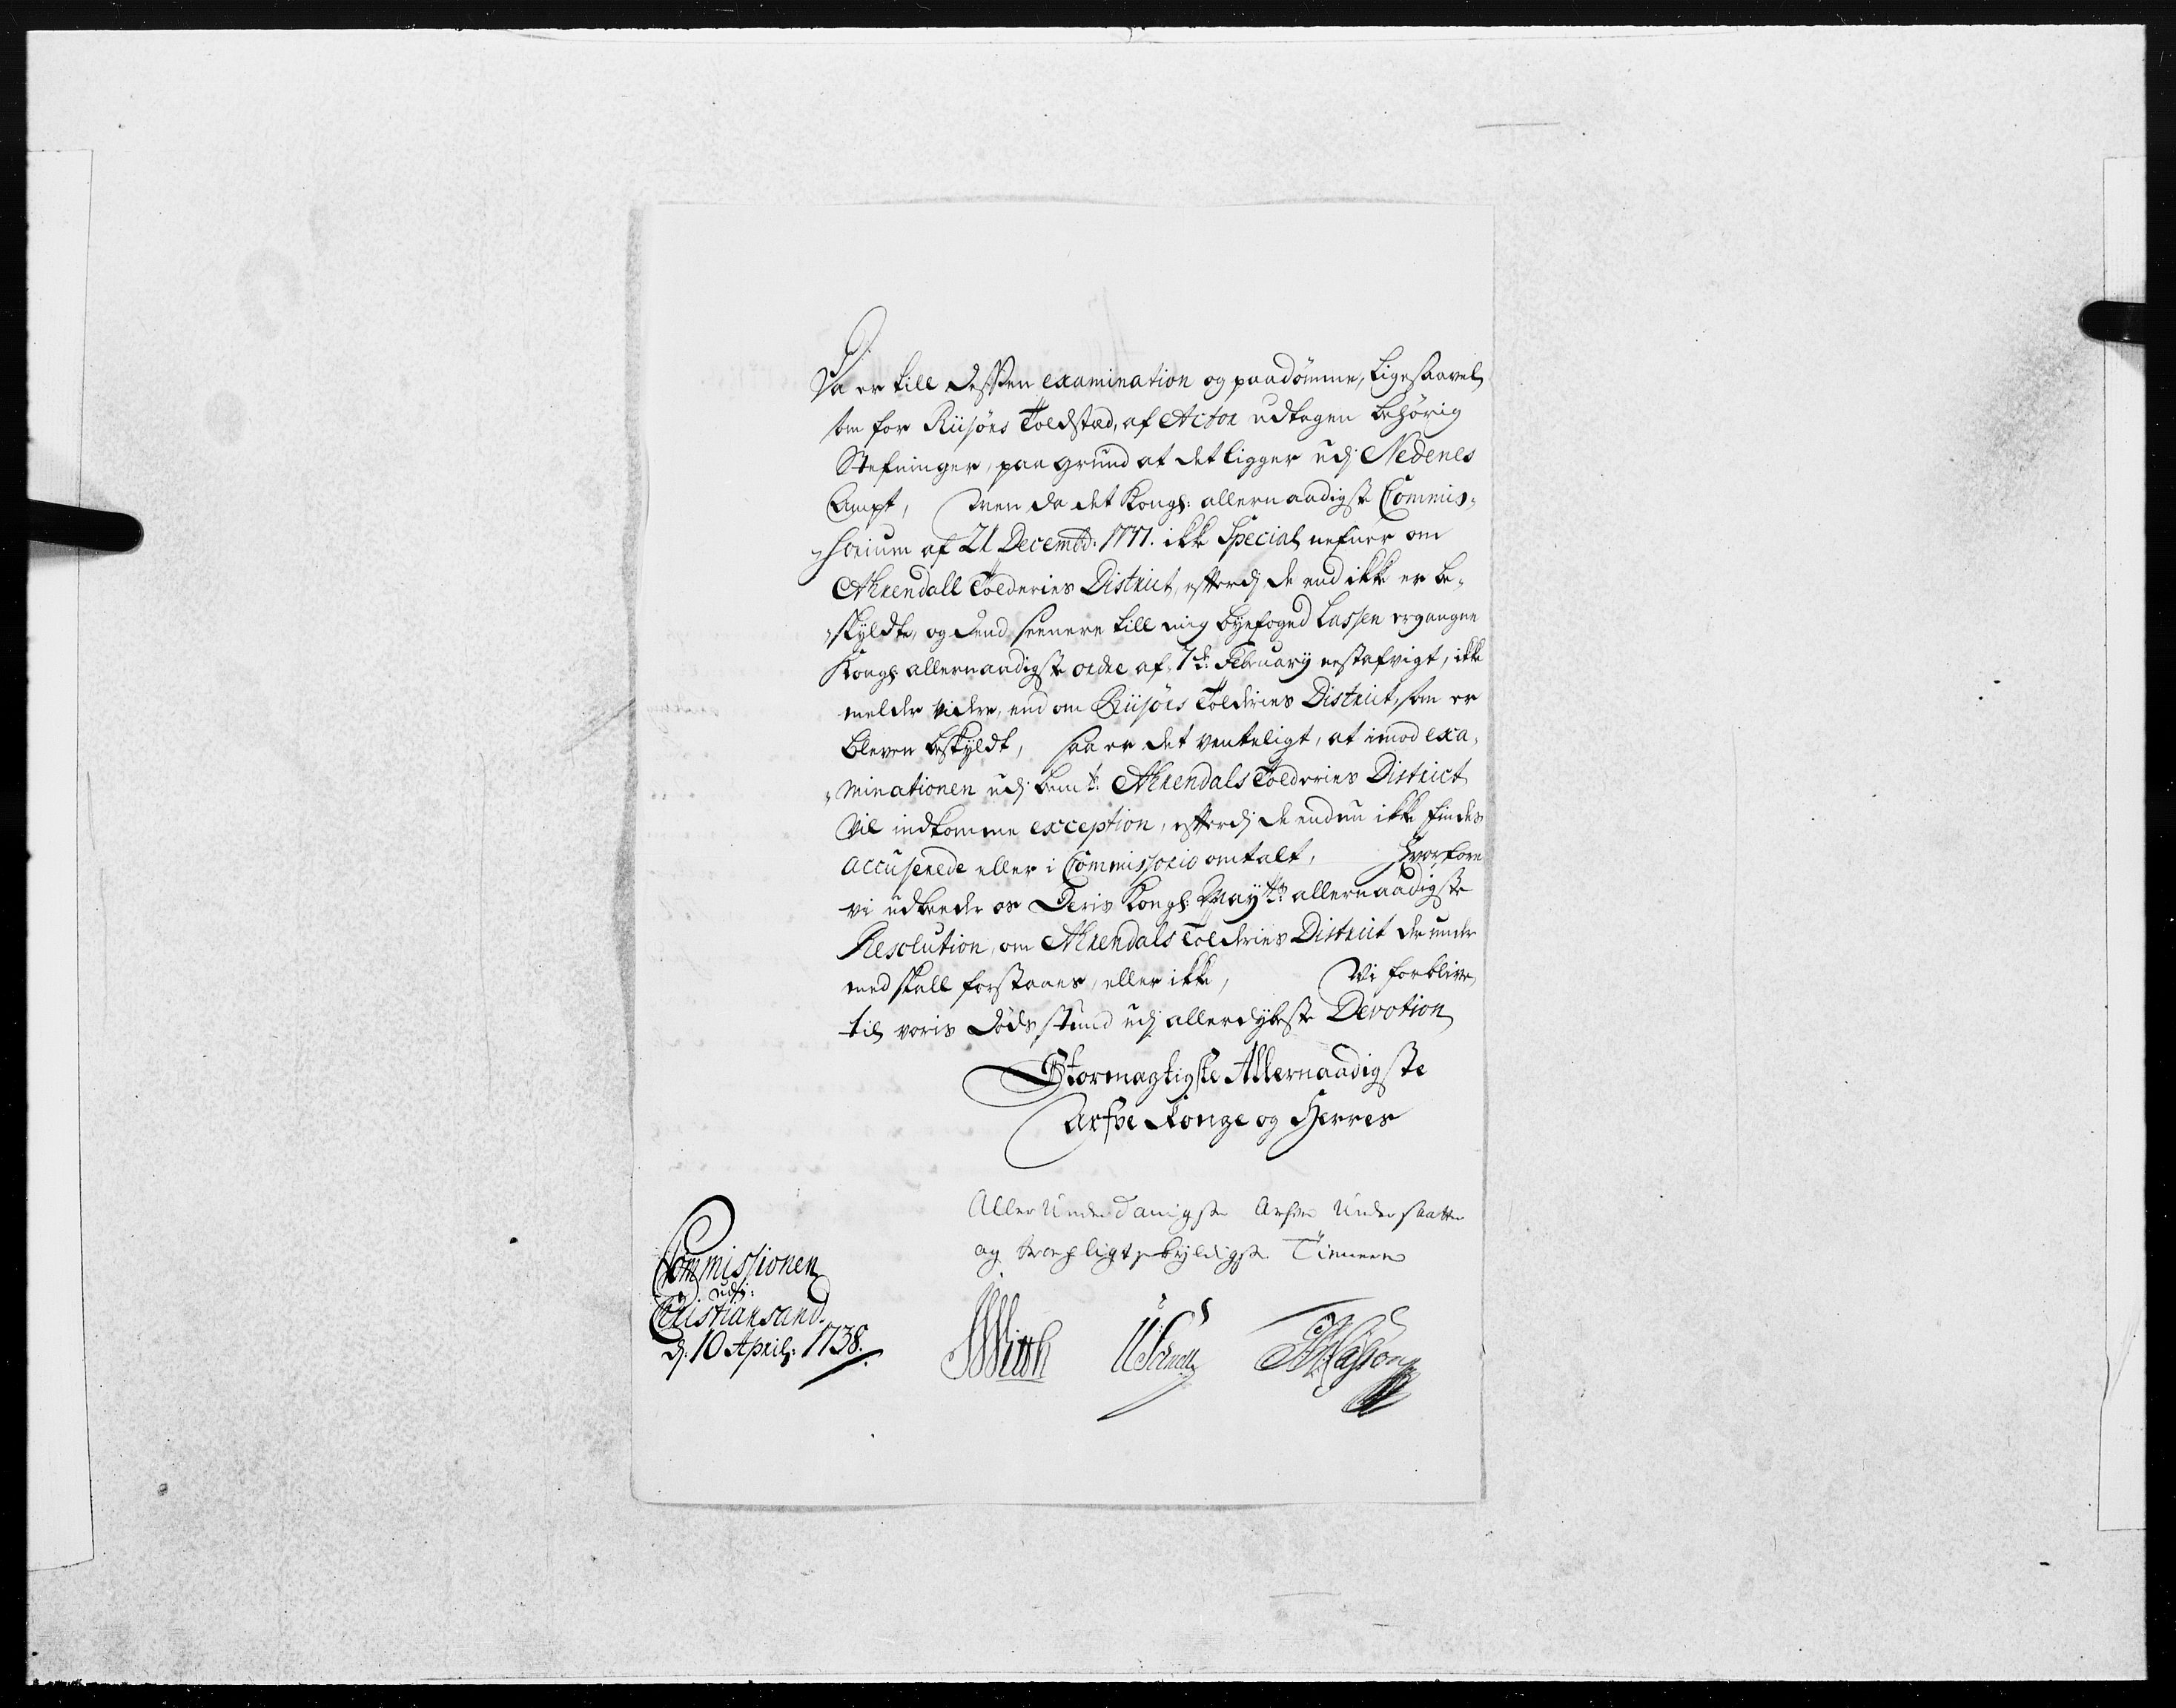 Da er till dessen examination og paadömme, ligesaavel
som for Riisöers Toldsted, af Actor udtagen behörig
Stefninger, paa grund at det ligger udj Nedenes
Ampt, Men da det Kongl: allernaadigste Commis-
sorium af 21 Decembd: ikke Special nefner om
Ahrendall Tolderies District, efterdj de end ikke er be-
skyldte, og dend seenere till mig byefoged Lassen ergangne
Kongl allernaadigste ordre af 7de February nestafvigt, ikke
melder videre, end om Riisöers Tolderies District, som er
bleven beskyldt, saa er det venteligt, at imod exa-
minationen udj bemte Ahrendals Tolderies District
vil indkomme exception, efterdj de endnu ikke findes
accuserede eller i Commissorio omtalt, Hvorfore
vi udbeder os Deris Kongl: Mayts allernaadigste
Resolution, om Ahrendals Tolderies District derunder
med skall forstaaes, eller ikke, Vi forblive
till voris Döds stund udj allerdybeste Devotion
Stormægtigste Allernaadigste
Arfve Konge og Herres
Allerunderdanigste Arfve Undersaatter
og pligtskyldigste Tienere
Commissionen
udj:
Christiansand
d: 10 April: 1738.